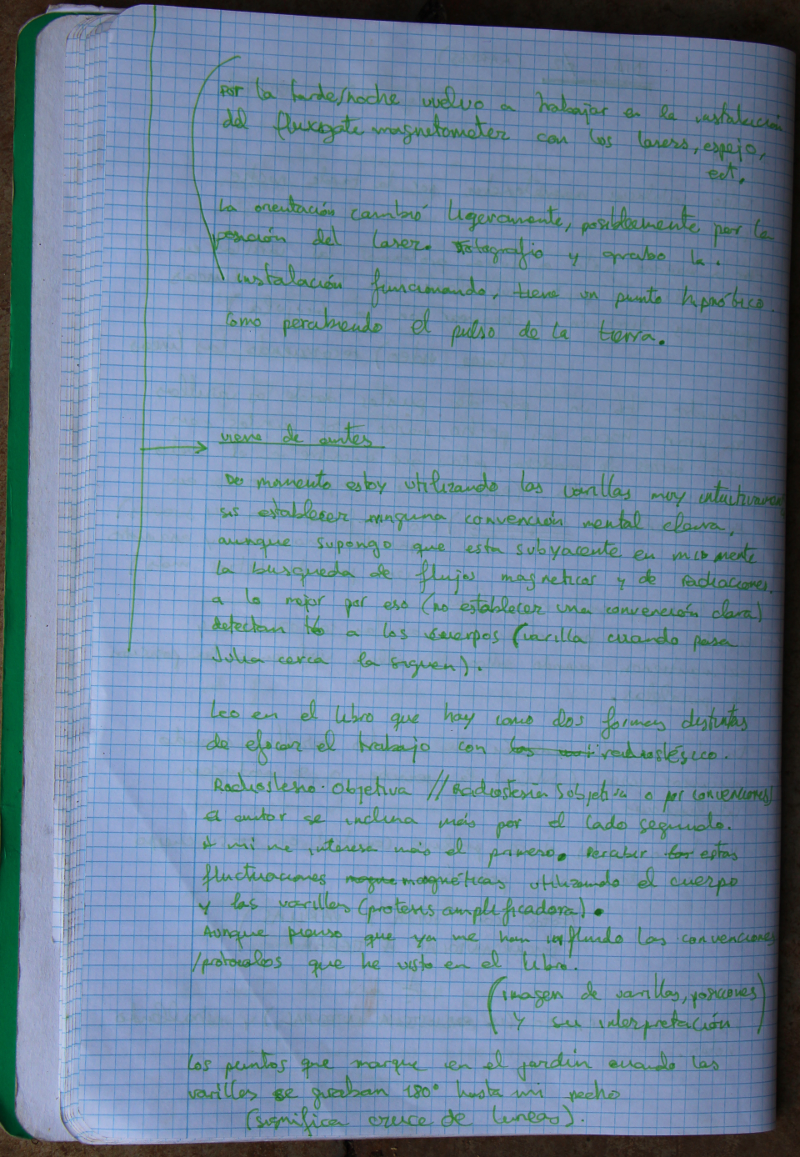 Por la tarde/noche vuelvo a trabajar en la instalación
del fluxgate magnetometer con los lasers, espejo,
ect.
La orientación cambió ligeramente, posiblemente por la
posición del laser. Fotografio y grabo la.
instalación funcionando, tiene un punto hipnótico.
Como percibiendo el pulso de la tierra.
viene de antes
De momento estoy utilizando las varillas muy intuitivamente
sin establecer ninguna convención mental clara,
aunque supongo que esta subyacente en mi mente
la busqueda de flujos magneticos y de radiaciones.
a lo mejor por eso (no establecer una convención clara)
detectan a los cuerpos (varilla cuando pasa
Julia cerca la siguen).
Leo en el libro que hay como dos formas distintas
de efocar el trabajo con radiestésico.
Radiestesia Objetiva // Radiestesia Subjetiva o por convenciones
el autor se inclina más por el lado segundo.
A mi me interesa más el primero. recabar estas
fluctuaciones magnéticas utilizando el cuerpo
y las varillas (protesis amplificadora).
Aunque pienso que ya me han influido las convenciones
/protocolos que he visto en el libro.
(imagen de varillas, posiciones
y su interpretación)
Los puntos que marque en el jardin cuando las
varillas se giraban 180º hasta mi pecho
(significa cruce de lineas).